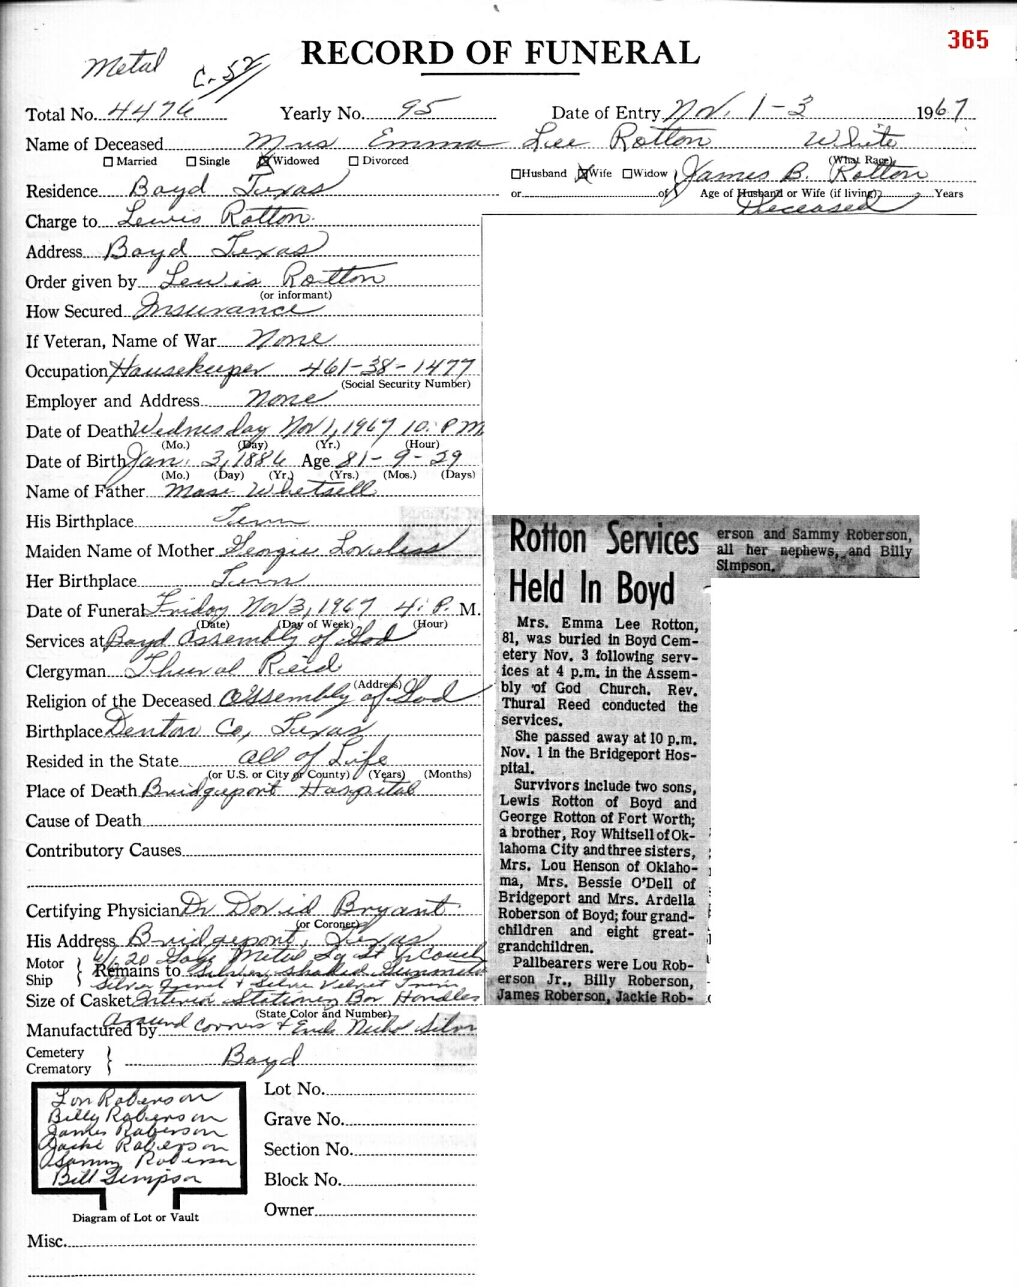 365
Metal C-52
RECORD OF FUNERAL
Total No. 4476 Yearly No. 95 Date of Entry Nov. 1-3 1967
Name of Deceased Mrs Emma Lee Rotton White
(What Race)
Married Single Widowed Divorced
Husband Wife Widow James B. Rotton
or of Age of Husband or Wife (if living) Years
Deceased
Residence Boyd Texas
Charge to Lewis Rotton
Address Boyd Texas
Order given by Lewis Rotton
(or informant)
How Secured Insurance
If Veteran, Name of War None
Occupation Housekeeper 461-38-1477
(Social Security Number)
Employer and Address None
Date of Death Wednesday Nov 1, 1967 10: P M
(Mo.) (Day) (Yr.) (Hour)
Date of Birth Jan. 3, 1886 Age 81-9-29
(Mo.) (Day) (Yr.) (Yrs.) (Mos.) (Days)
Name of Father Mose Whetsell
His Birthplace Tenn
Maiden Name of Mother Georgie Loveless
Her Birthplace Tenn
Date of Funeral Friday Nov 3, 1967 4: P. M.
(Date) (Day of Week) (Hour)
Services at Boyd Assembly of God
Clergyman Thural Reid
(Address)
Religion of the Deceased Assembly of God
Birthplace Denton Co, Texas
Resided in the State all of Life
(or U.S. or City or County) (Years) (Months)
Place of Death Bridgeport Hospital
Cause of Death
Contributory Causes
Certifying Physician Dr David Bryant
(or Coroner)
His Address Bridgeport, Texas
Motor
Ship
Remains to
6/6 20 Gage Metal Sq
Silver Shaded
Silver & Silver Velvet
Size of Casket Interior Stationery Bar Handles
(State Color and Number)
Manufactured by Around Corners & Ends Silver
Cemetery
Crematory
Boyd
Lon Roberson
Billy Roberson
James Roberson
Jackie Roberson
Sammy Roberson
Bill Simpson
Diagram of Lot or Vault
Lot No.
Grave No.
Section No.
Block No.
Owner
Misc.
Rotton Services
Held In Boyd
Mrs. Emma Lee Rotton,
81, was buried in Boyd Cem-
etery Nov. 3 following serv-
ices at 4 p.m. in the Assem-
bly of God Church. Rev.
Thural Reed conducted the
services.
She passed away at 10 p.m.
Nov. 1 in the Bridgeport Hos-
pital.
Survivors include two sons,
Lewis Rotton of Boyd and
George Rotton of Fort Worth;
a brother, Roy Whitsell of Ok-
lahoma City and three sisters,
Mrs. Lou Henson of Oklaho-
ma, Mrs. Bessie O'Dell of
Bridgeport and Mrs. Ardella
Roberson of Boyd; four grand-
children and eight great-
grandchildren.
Pallbearers were Lou Rob-
erson Jr., Billy Roberson,
James Roberson, Jackie Rob-
erson and Sammy Roberson,
all her nephews, and Billy
Simpson.